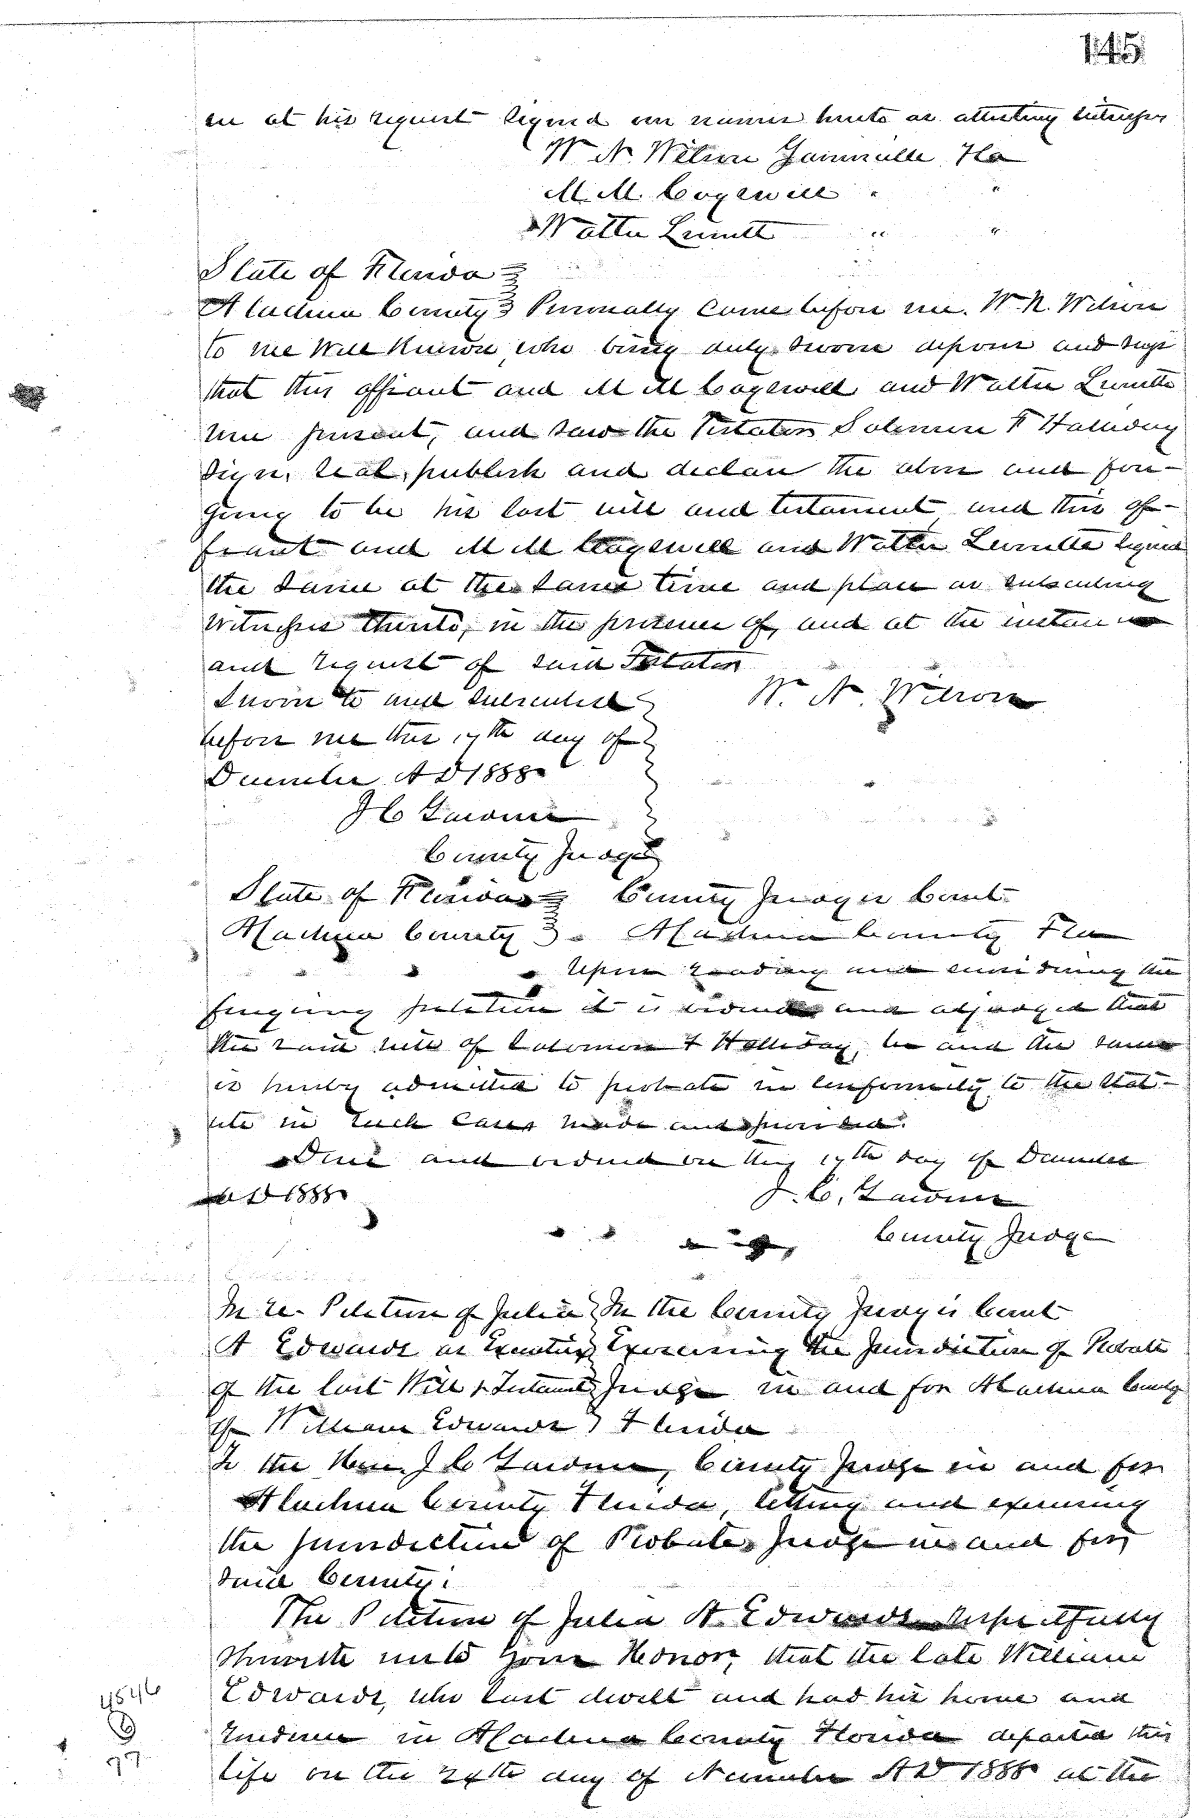 145
we at his request signed our names hereto as attesting witnesses
W. N. Wilson Gainesville, Fla
M. M. Cogswell " "
Walter Livrett " "
State of Florida }
Alachua County } Personally came before me. W. N. Wilson
to me Well Known, who being duly sworn deposes and says
that this affiant and M M Cogswell and Walter Livrette
were present, and saw the Testator Solomon F Halliday
sign, seal, publish and declare the above and fore-
going to be his last will and testament and this af-
fiant and M M Cogswell and Walter Livrette signed
the same at the same time and place as subscribing
witnesses thereto, in the presence of, and at the instance
and request of said Testator
Sworn to and subscribed } W. N. Wilson
before me this 17th day of
December A D 1888
J C Gardner
County Judge
State of Florida } County Judges Court
Alachua County } Alachua County Fla
Upon reading and considering the
foregoing petition it is ordered and adjudged that
the said will of Solomon F Halliday, be and the same
is hereby admitted to probate in conformity to the stat-
ute in such cases made and provided.
Done and ordered on this 17th day of December
A D 1888
J. C. Gardner
County Judge
In re- Petition of Julia } In the County Judges Court
A Edwards as Executrix } Exercising the Jurisdiction of Probate
of the last Will & Testament } Judge in and for Alachua County
of William Edwards } Florida
To the Hon. J C Gardner, County Judge in and for
Alachua County Florida, sitting and exercising
the jurisdiction of Probate Judge in and for
said County:
The Petition of Julia A Edwards respectfully
showeth unto your Honor, that the late William
Edwards, who last dwelt and had his home and
residence in Alachua County Florida departed this
life on the 24th day of November A D 1888 at the
4546
6
77